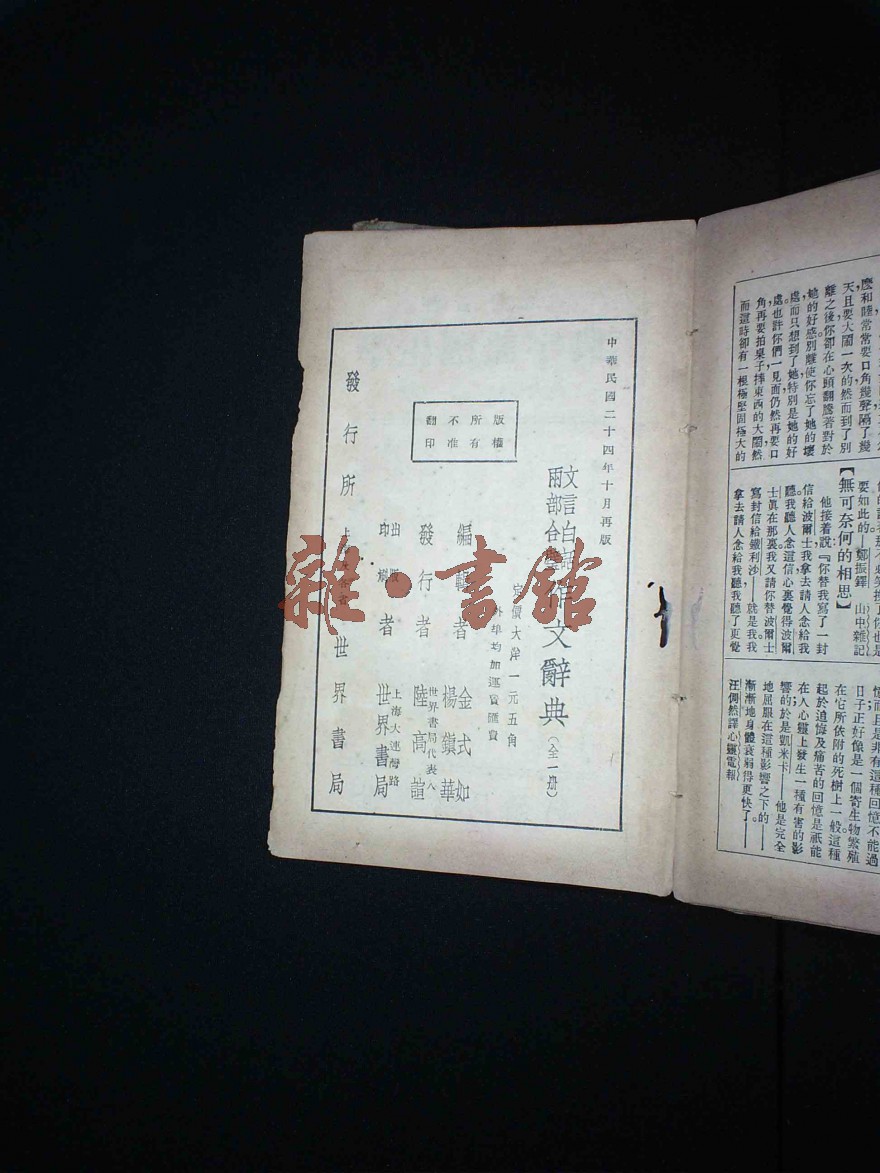 中華民國二十四年十月再版
文言白話
兩部合璧
作文辭典
(全一册)
定價大洋一元五角
外埠均加運費匯費
版權
所有
不准
翻印
編輯者
金式如
楊鎮華
發行者
世界書局代表人
陸高誼
出版
印刷
者
上海大連灣路
世界書局
發行所
世界書局
雜·書館
麽和睦常常要口角幾聲隔了幾
天且要大鬧一次的然而到了別
離之後你卻在心頭翻騰著對於
她的好感別離使你忘了她的壞
處而只想到了她特別是她的好
處也許你們一見面仍然再要口
角再要拍桌子摔東西的大鬧然
而這時卻有一根極堅固極大的
要如此的——鄭振鐸 山中雜記
【無可奈何的相思】
他接着說『你替我寫了一封
信給波爾士我拿去請人念給我
聽我聽人念這信心裏覺得波爾
士眞在那裏我又請你替波爾士
寫封信給鐵利沙——就是我我
拿去請人念給我聽我聽了更覺
憶而且是非有這種回憶不能過
日子正好像是一個寄生物繁殖
在它所依附的死樹上一般這種
起於追悔及痛苦的回憶是祇能
在人心靈上發生一種有害的影
響的於是凱米卡——他是完全
地屈服在這種影響之下的——
漸漸地身體衰弱得更快了——
汪倜然譯心靈電報